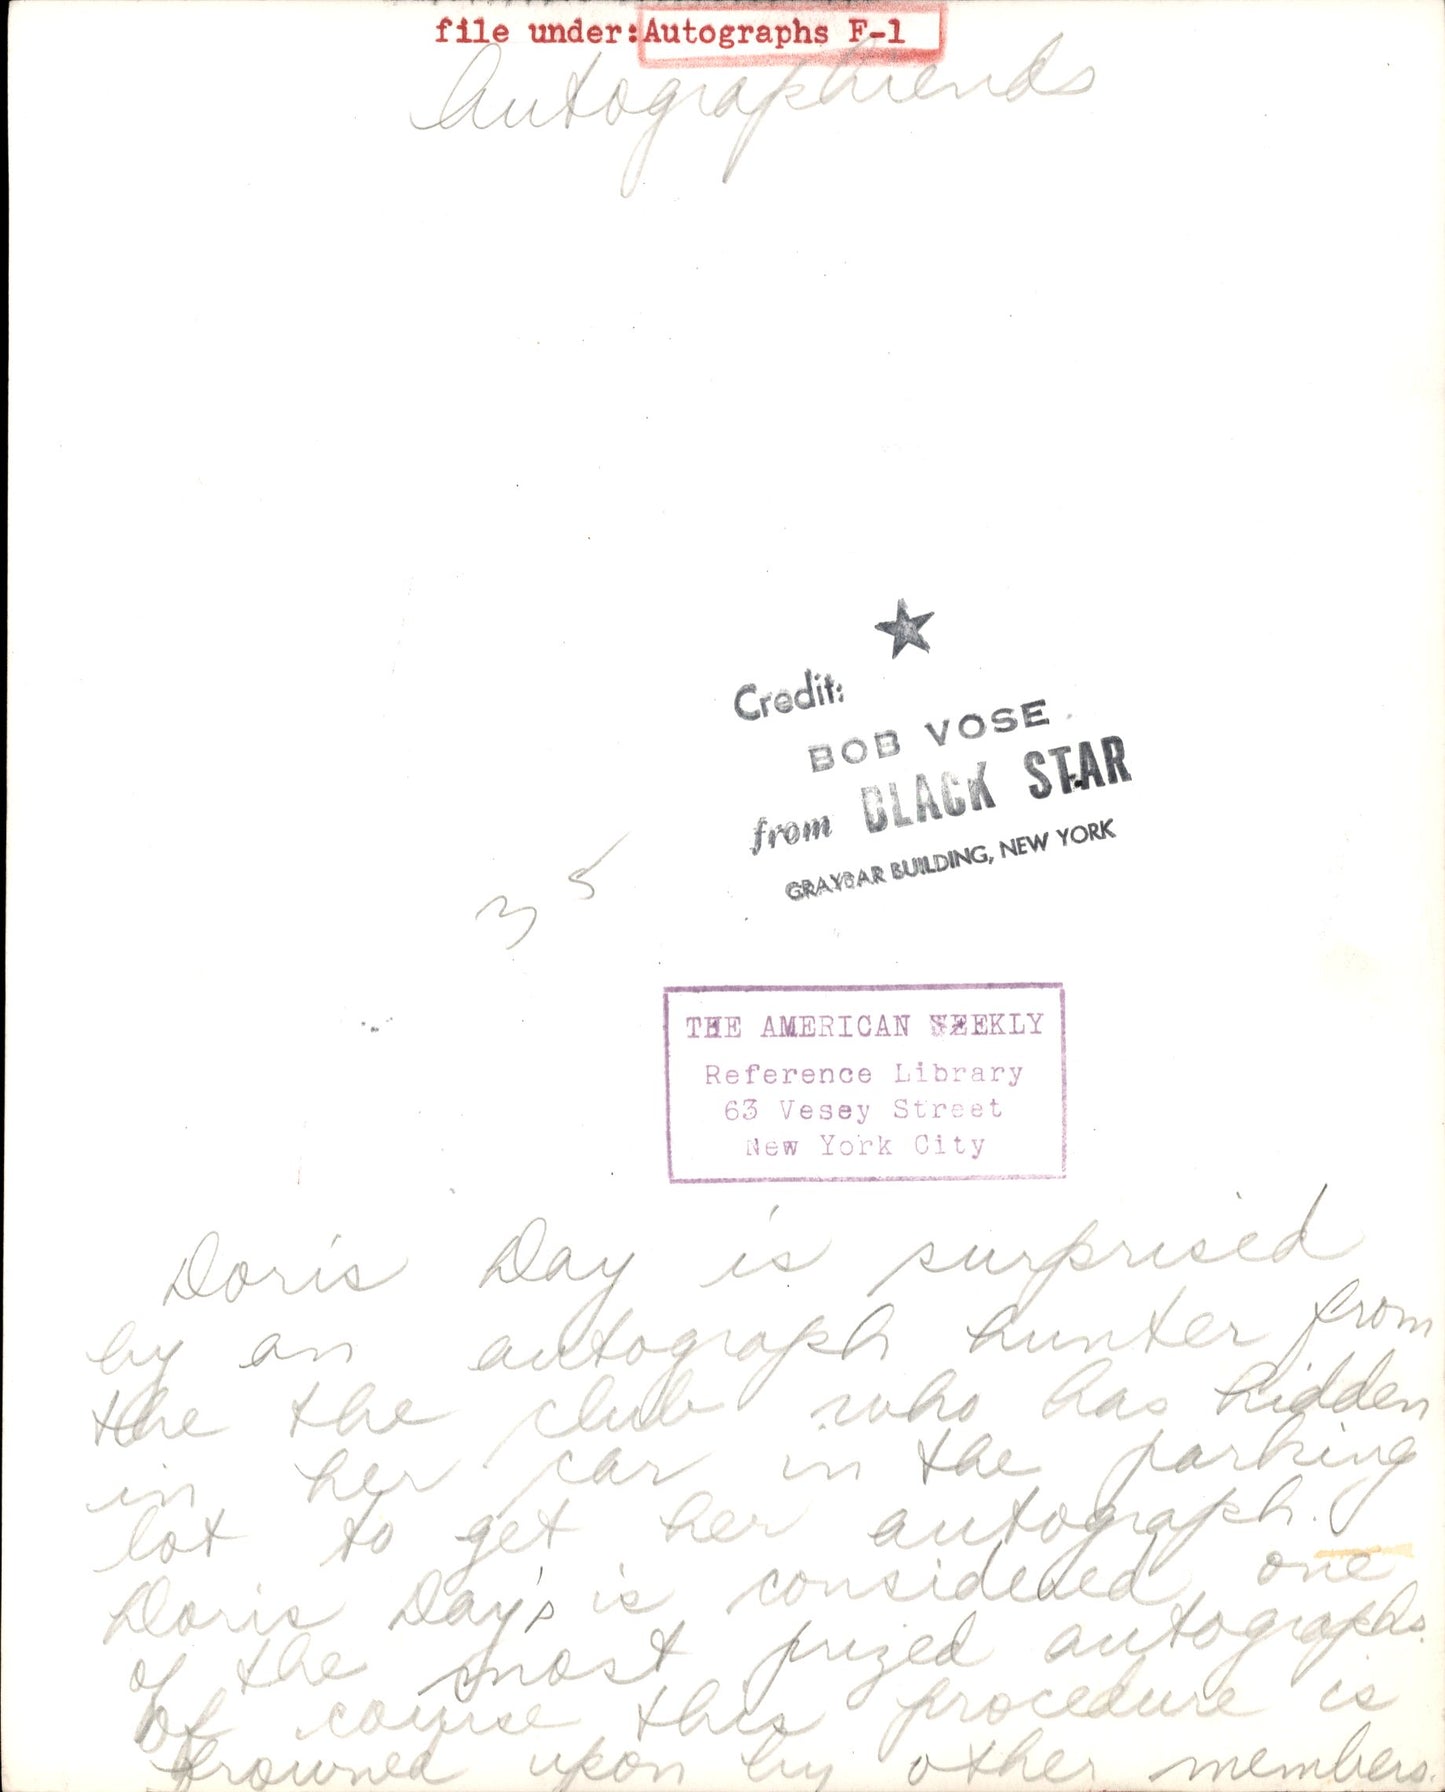 file under: Autographs F-1
Autographiends
Credit:
BOB VOSE
from BLACK STAR
GRAYBAR BUILDING, NEW YORK
35
THE AMERICAN WEEKLY
Reference Library
63 Vesey Street
New York City
Doris Day is surprised
by an autograph hunter from
the the club who has hidden
in her car in the parking
lot to get her autograph.
Doris Day's is considered one
of the most prized autographs.
Of course this procedure is
frowned upon by other members.